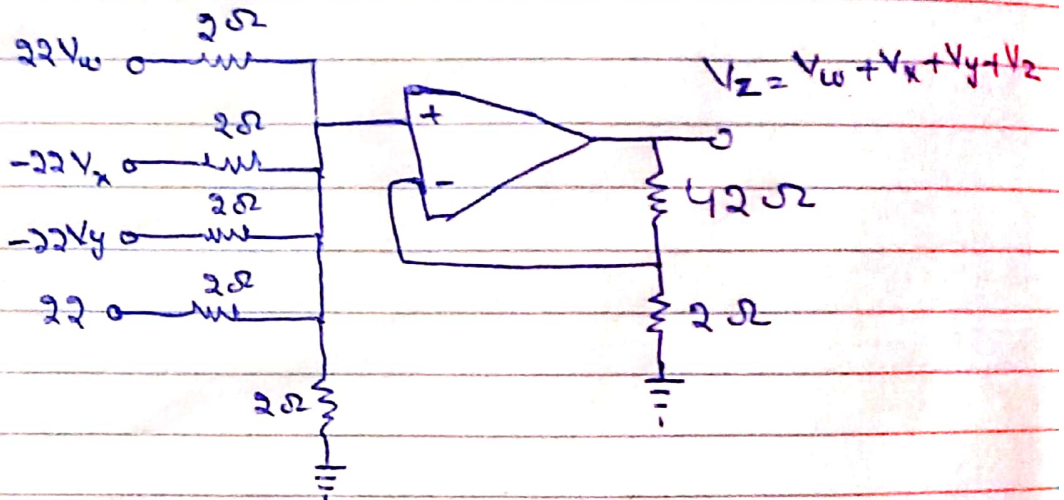 2Ω
22Vw
Vz = Vw + Vx + Vy + Vz
2Ω
+
-22Vx
-
42Ω
2Ω
-22Vy
2Ω
22
2Ω
2Ω